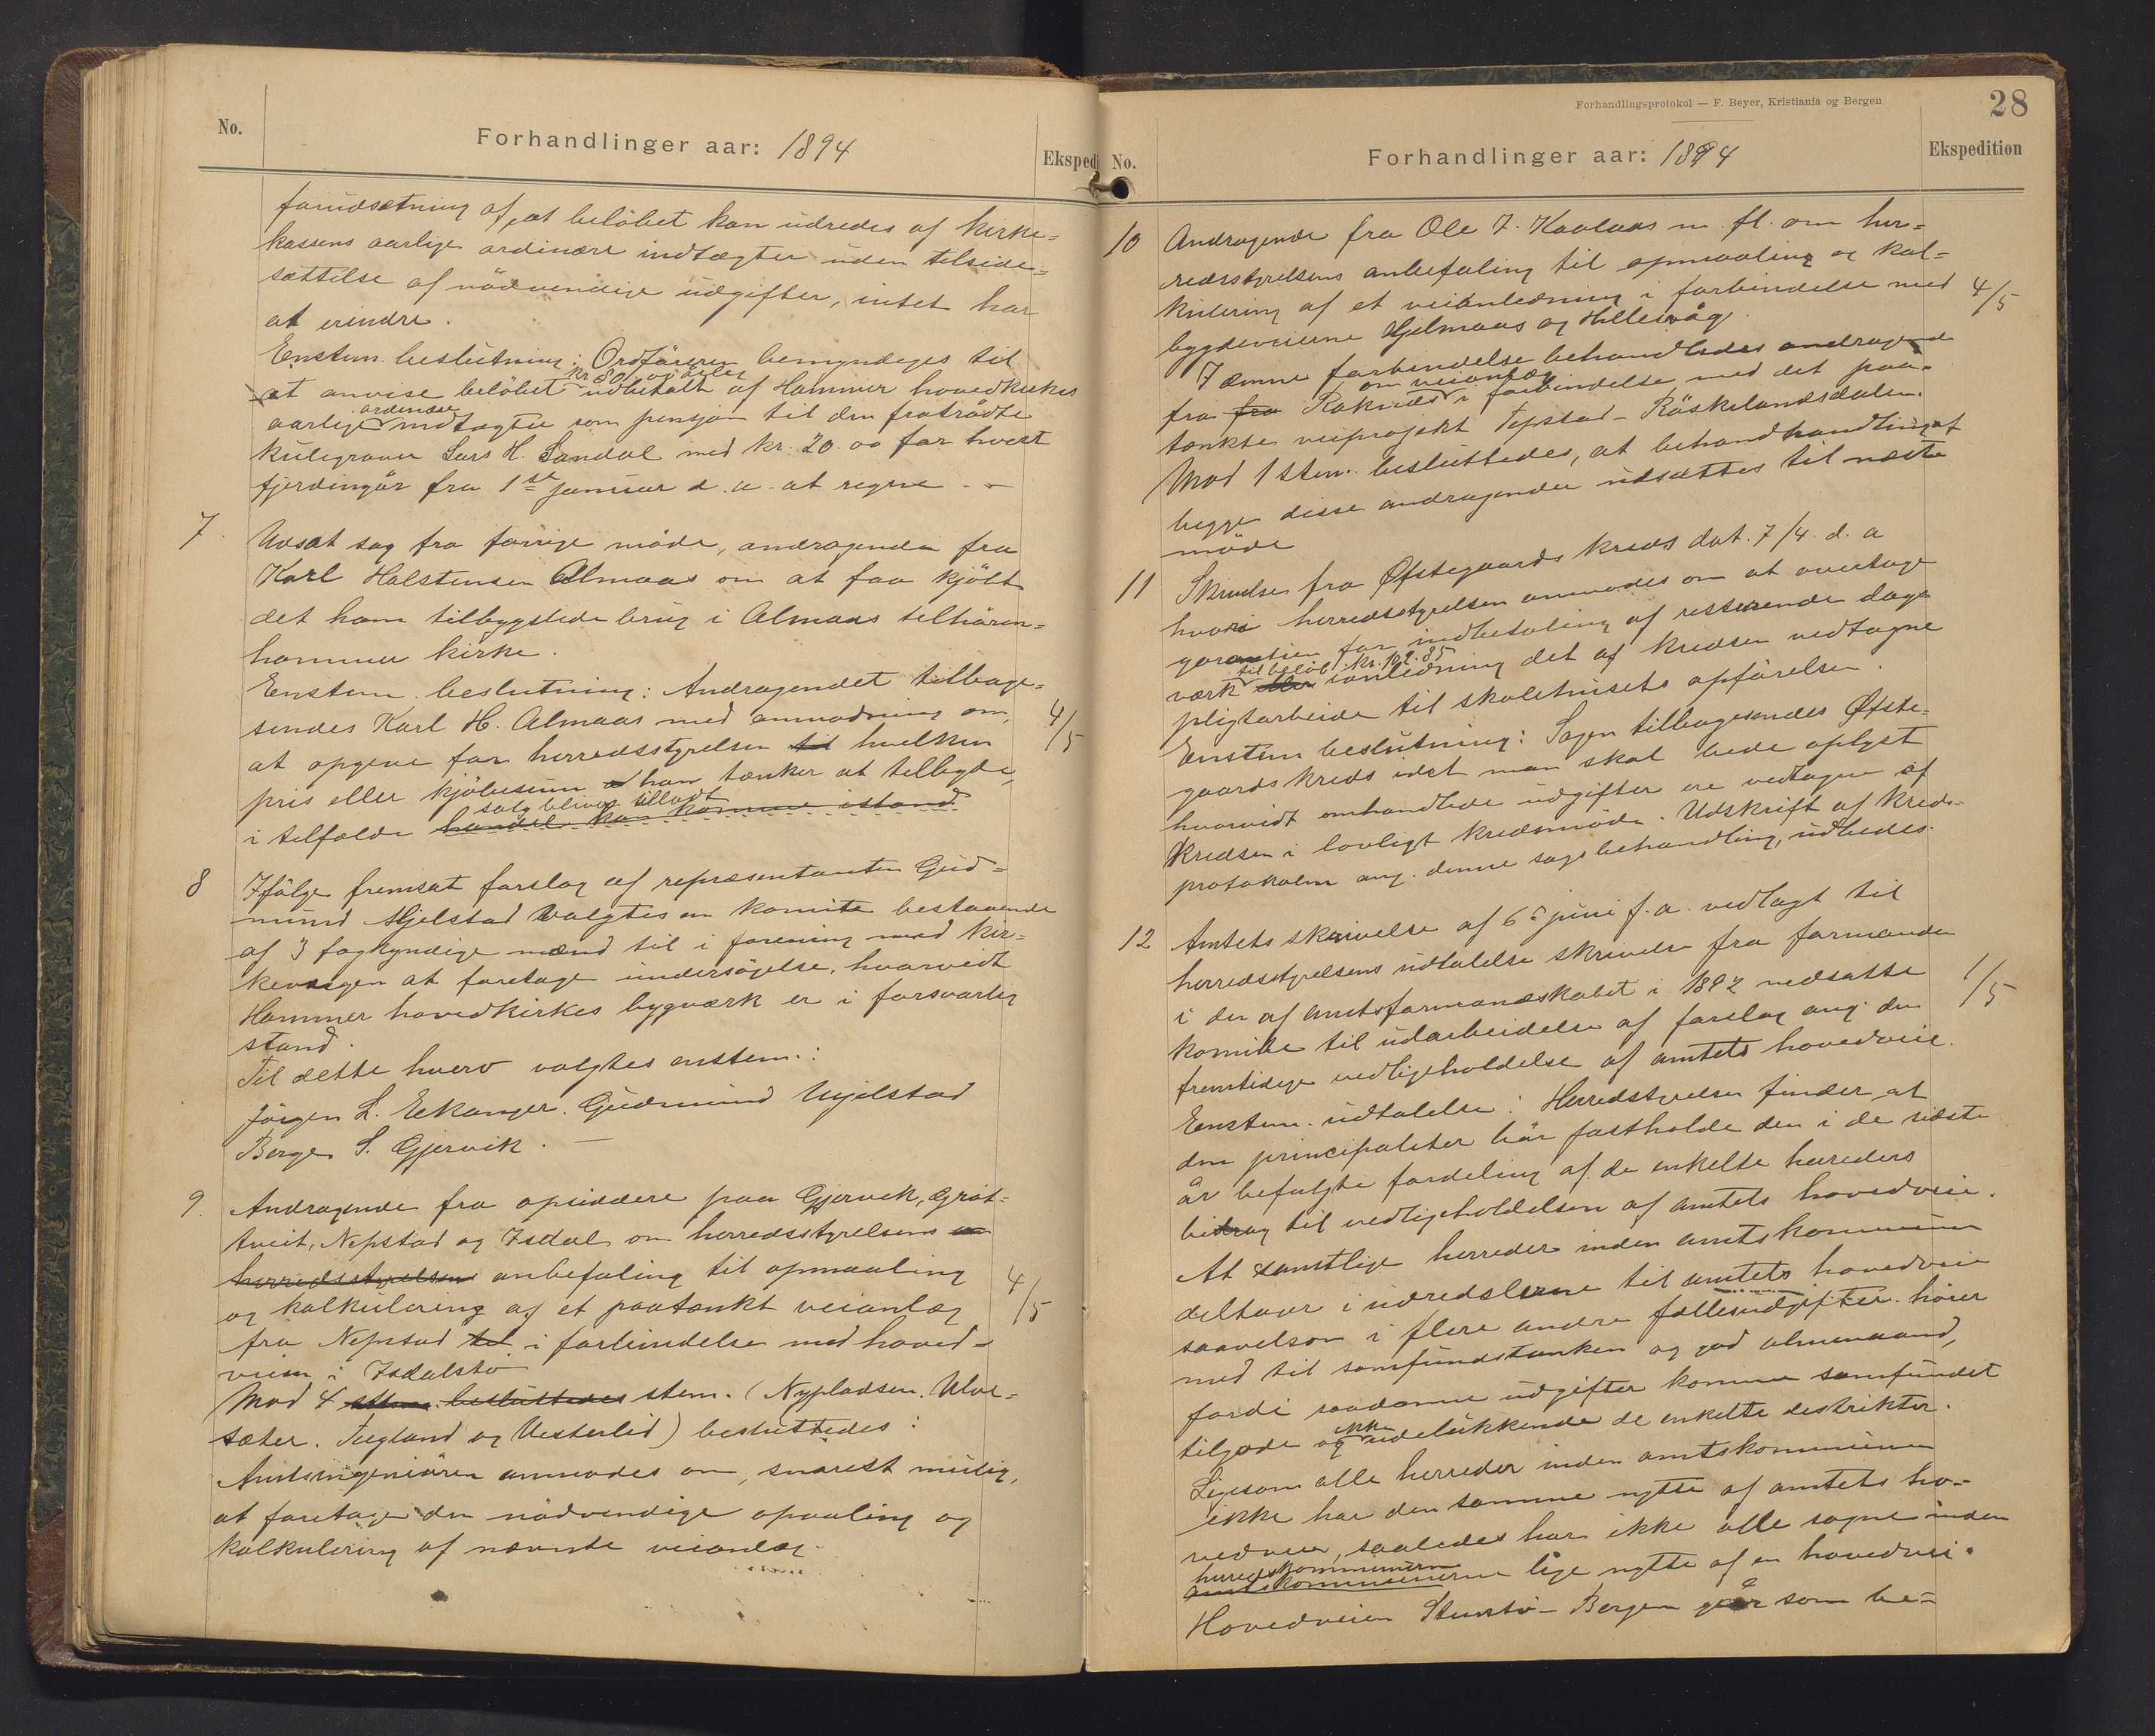 No.
Forhandlinger aar: 1894
Eksped
forudsætning af, at belöbet kan udredes af kirke=
kassens aarlige ordinære indtægter uden tilside=
sættelse af nödvendige udgifter, intet har
at erindre.
Enstem. beslutning: Ordföreren bemyndiges til
kr 80,00 årlig
at anvise belöbet udbetalt af Hammer hovedkirkes
ordinære
aarlige indtægter som pensjon til den fratrådte
kulegraver Lars H. Sandal med kr. 20.00 for hvert
fjerdingår fra 1ste januar d. a. at regne. -
7. Udsat sag fra forrige möde, andragende fra
Karl Halstensen Almaas om at faa kjöbt
det ham tilbygslede brug i Almaas tilhören=
hammer kirke.
Enstem. beslutning: Andragendet tilbage=
sendes Karl H. Almaas med anmodning om,
at opgive for herredsstyrelsen til hvilken
4/5
pris eller kjöbesum han tænker at tilbyde,
salg bliver tilladt
i tilfælde handel kan komme istand.
8 Ifölge fremsat forslag af repræsentanten Gud=
mund Mjelstad valgtes en komite bestaaende
af 3 fagkyndige mænd til i forening med kir=
kevergen at foretage undersögelse, hvorvidt
Hammer hovedkirkes bygværk er i forsvarlig
stand.
Til dette hverv valgtes enstem.:
Jörgen L. Eekanger. Gudmund Mjelstad
Berge S. Gjervik. —
9. Andragende fra opsiddere paa Gjervik, Gröt=
tveit, Nepstad og Isdal om herredsstyrelsens om
herredsstyrelsens anbefaling til opmaaling
og kalkulering af et paatænkt veianlæg
4/5
fra Nepstad til i forbindelse med hoved=
veien i Isdalstö
Mod 4 stem. besluttedes stem. (Nypladsen. Ulve=
sæter. Tvegland og Vesterlid) besluttedes:
Amtsingeniören anmodes om, snarest mulig,
at foretage den nödvendige opaaling og
kalkulering af nævnte veianlæg.
Forhandlingsprotokol — F. Beyer, Kristiania og Bergen
28
No.
Forhandlinger aar: 1894
Ekspedition
10 Andragende fra Ole I. Kaalaas m. fl. om her=
redsstyrelsens anbefaling til opmaaling og kal=
kulering af et veianledning i forbindelse med
4/5
bygdeveiene Hjelmaas og Hillesvåg.
I denne forbindelse behandledes andragende
om veianlæg
fra fra Raknæs i forbindelse med det paa=
tænkte veiprojekt Tepstad - Röskelandsdalen.
Mod 1 stem. besluttedes, at behandhandling af
begge disse andragender udsættes til næste
möde
11 Skrivelse fra Øfstegaards kreds dat. 7/4. d. a
hvori herredsstyrelsen anmodes om at overtage
garantien for indbetaling af resterende dags=
til beløb kr. 102.85
værk i anledning det af kredsen vedtagne
pligtarbeide til skolehusets opförelse.
Enstem beslutning: Sagen tilbagesendes Øfste=
gaards kreds idet man skal bede oplyst
hvorvidt omhandlede udgifter ere vedtagne af
kredsen i lovligt kredsmöde. Udskrift af kreds=
protokolen ang. denne sags behandling, udbedes.
12 Amtets skrivelse af 6te juni f. a. vedlagt til
herredsstyrelsens udtalelse skrivelse fra formanden
i den af amtsformandskabet i 1892 nedsatte
1/5
komite til udarbeidelse af forslag ang. den
fremtidige vedligeholdelse af amtets hovedveie.
Enstem. udtalelse: Herredstyrelsen finder at
den principaliter bör fastholde den i de sidste
år befulgte fordeling af de enkelte herreders
bidrag til vedligeholdelsen af amtets hovedveie.
At samtlige herreder inden amtskommunen
deltaar i udredslerne til amtets hovedveie
saavelsom i flere andre fællesudgifter hörer
med til samfundstanken og god almenaand,
fordi saadanne udgifter komme samfundet
ikke
tilgode og udelukkende de enkelte destrikter.
Ligesom alle herreder inden amtskommunen
ikke har den samme nytte af amtets ho=
vedveie, saaledes har ikke alle sogne inden
herredskommunerne
amtskommunerne lige nytte af en hovedvei.
Hovedveien Stustö - Bergen går som be=